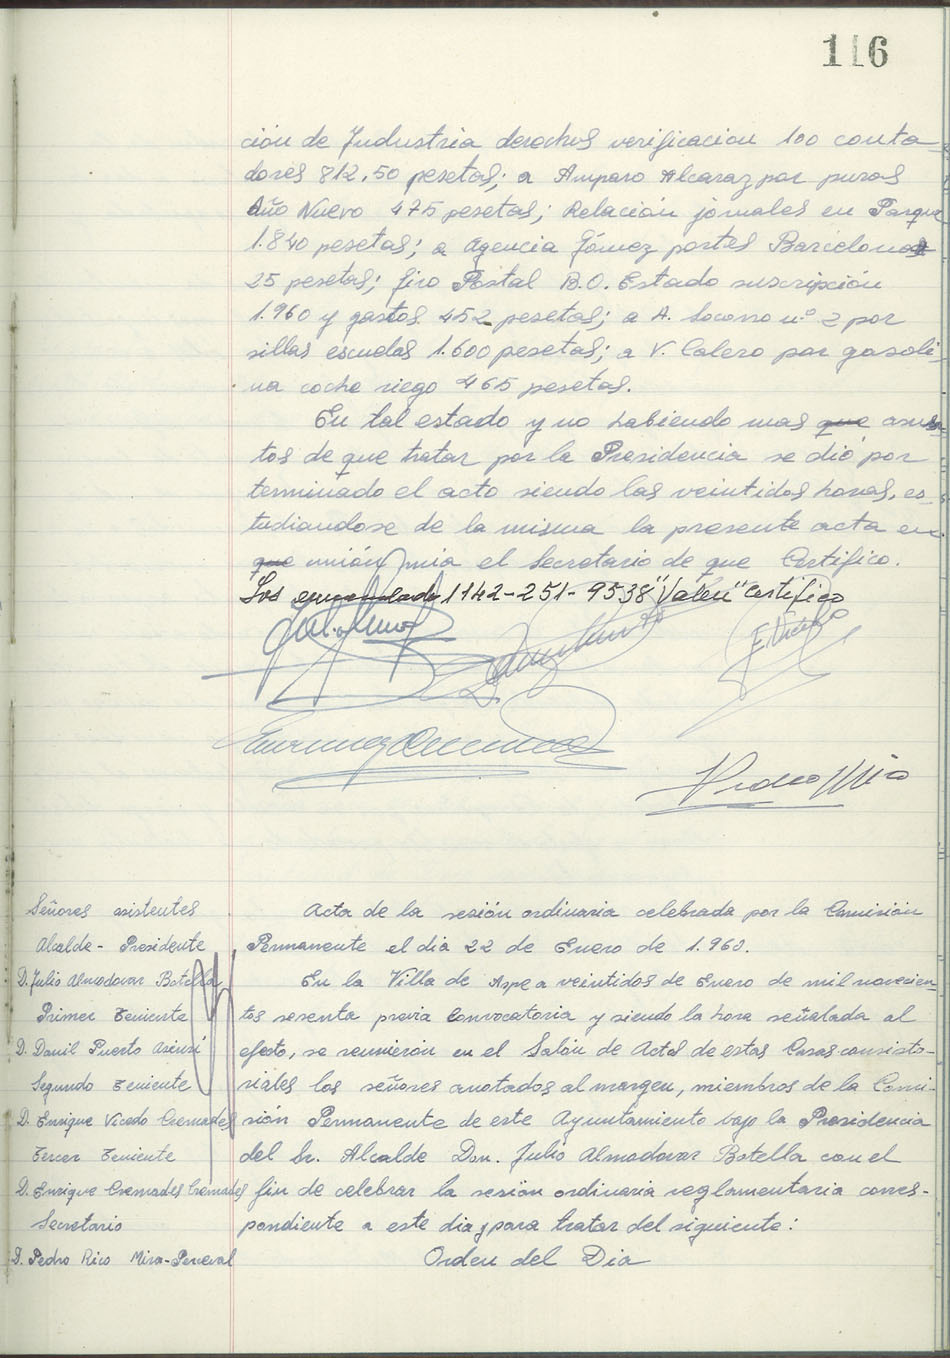 116
ción de Industria derechos verificacion 100 conta
dores 812,50 pesetas; a Amparo Alcaraz por puros
Año Nuevo 475 pesetas; Relación jornales en Parque
1.840 pesetas; a Agencia Gómez portes Barcelona
25 pesetas; Giro Postal B.O. Estado suscripción
1.960 y gastos 452 pesetas; a A. Socorro nº 2 por
sillas escuelas 1.600 pesetas; a V. Calero por gasoli-
na coche riego 465 pesetas.
En tal estado y no habiendo mas que asun-
tos de que tratar por la Presidencia se dió por
terminado el acto siendo las veintidos horas, es
tudiandose de la misma la presente acta en
que unión mia el Secretario de que Certifico.
Los enmendado 1142-251-9538 "Valen" certifico
E. Vicedo
Pedro Rico
Señores asistentes
Alcalde-Presidente
D. Julio Almodovar Botella
Primer Teniente
D. Danil Puerto Asensi
Segundo Teniente
D. Enrique Vicedo Cremades
Tercer Teniente
D. Enrique Cremades Cremades
Secretario
D. Pedro Rico Mira-Perceval
Acta de la sesión ordinaria celebrada por la Comisión
Permanente el dia 22 de Enero de 1.960.
En la Villa de Aspe a veintidos de Enero de mil novecien-
tos sesenta previa convocatoria y siendo la hora señalada al
efecto, se reunieron en el Salón de Actos de estas Casas consisto-
riales los señores anotados al margen, miembros de la Comi-
sión Permanente de este Ayuntamiento bajo la Presidencia
del Sr. Alcalde Don Julio Almodovar Botella con el
fin de celebrar la sesión ordinaria reglamentaria corres-
pondiente a este dia y para tratar del siguiente:
Orden del Dia